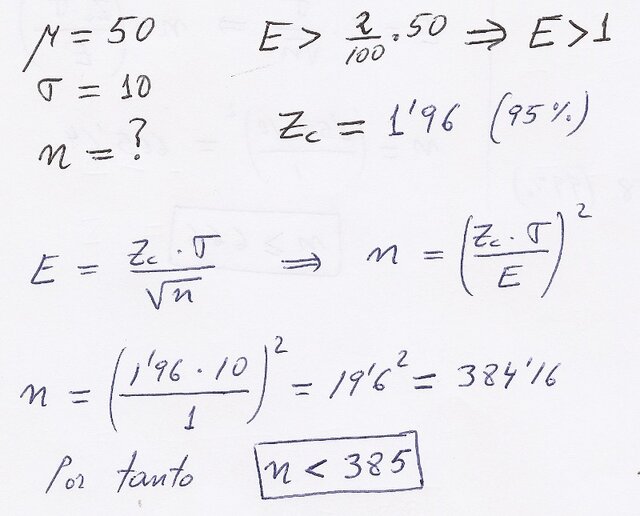 μ = 50 E > 2/100 · 50 ⇒ E > 1
σ = 10
n = ? Zc = 1'96 (95%)
E = Zc · σ / √n ⇒ n = (Zc · σ / E)²
n = (1'96 · 10 / 1)² = 19'6² = 384'16
Por tanto n < 385